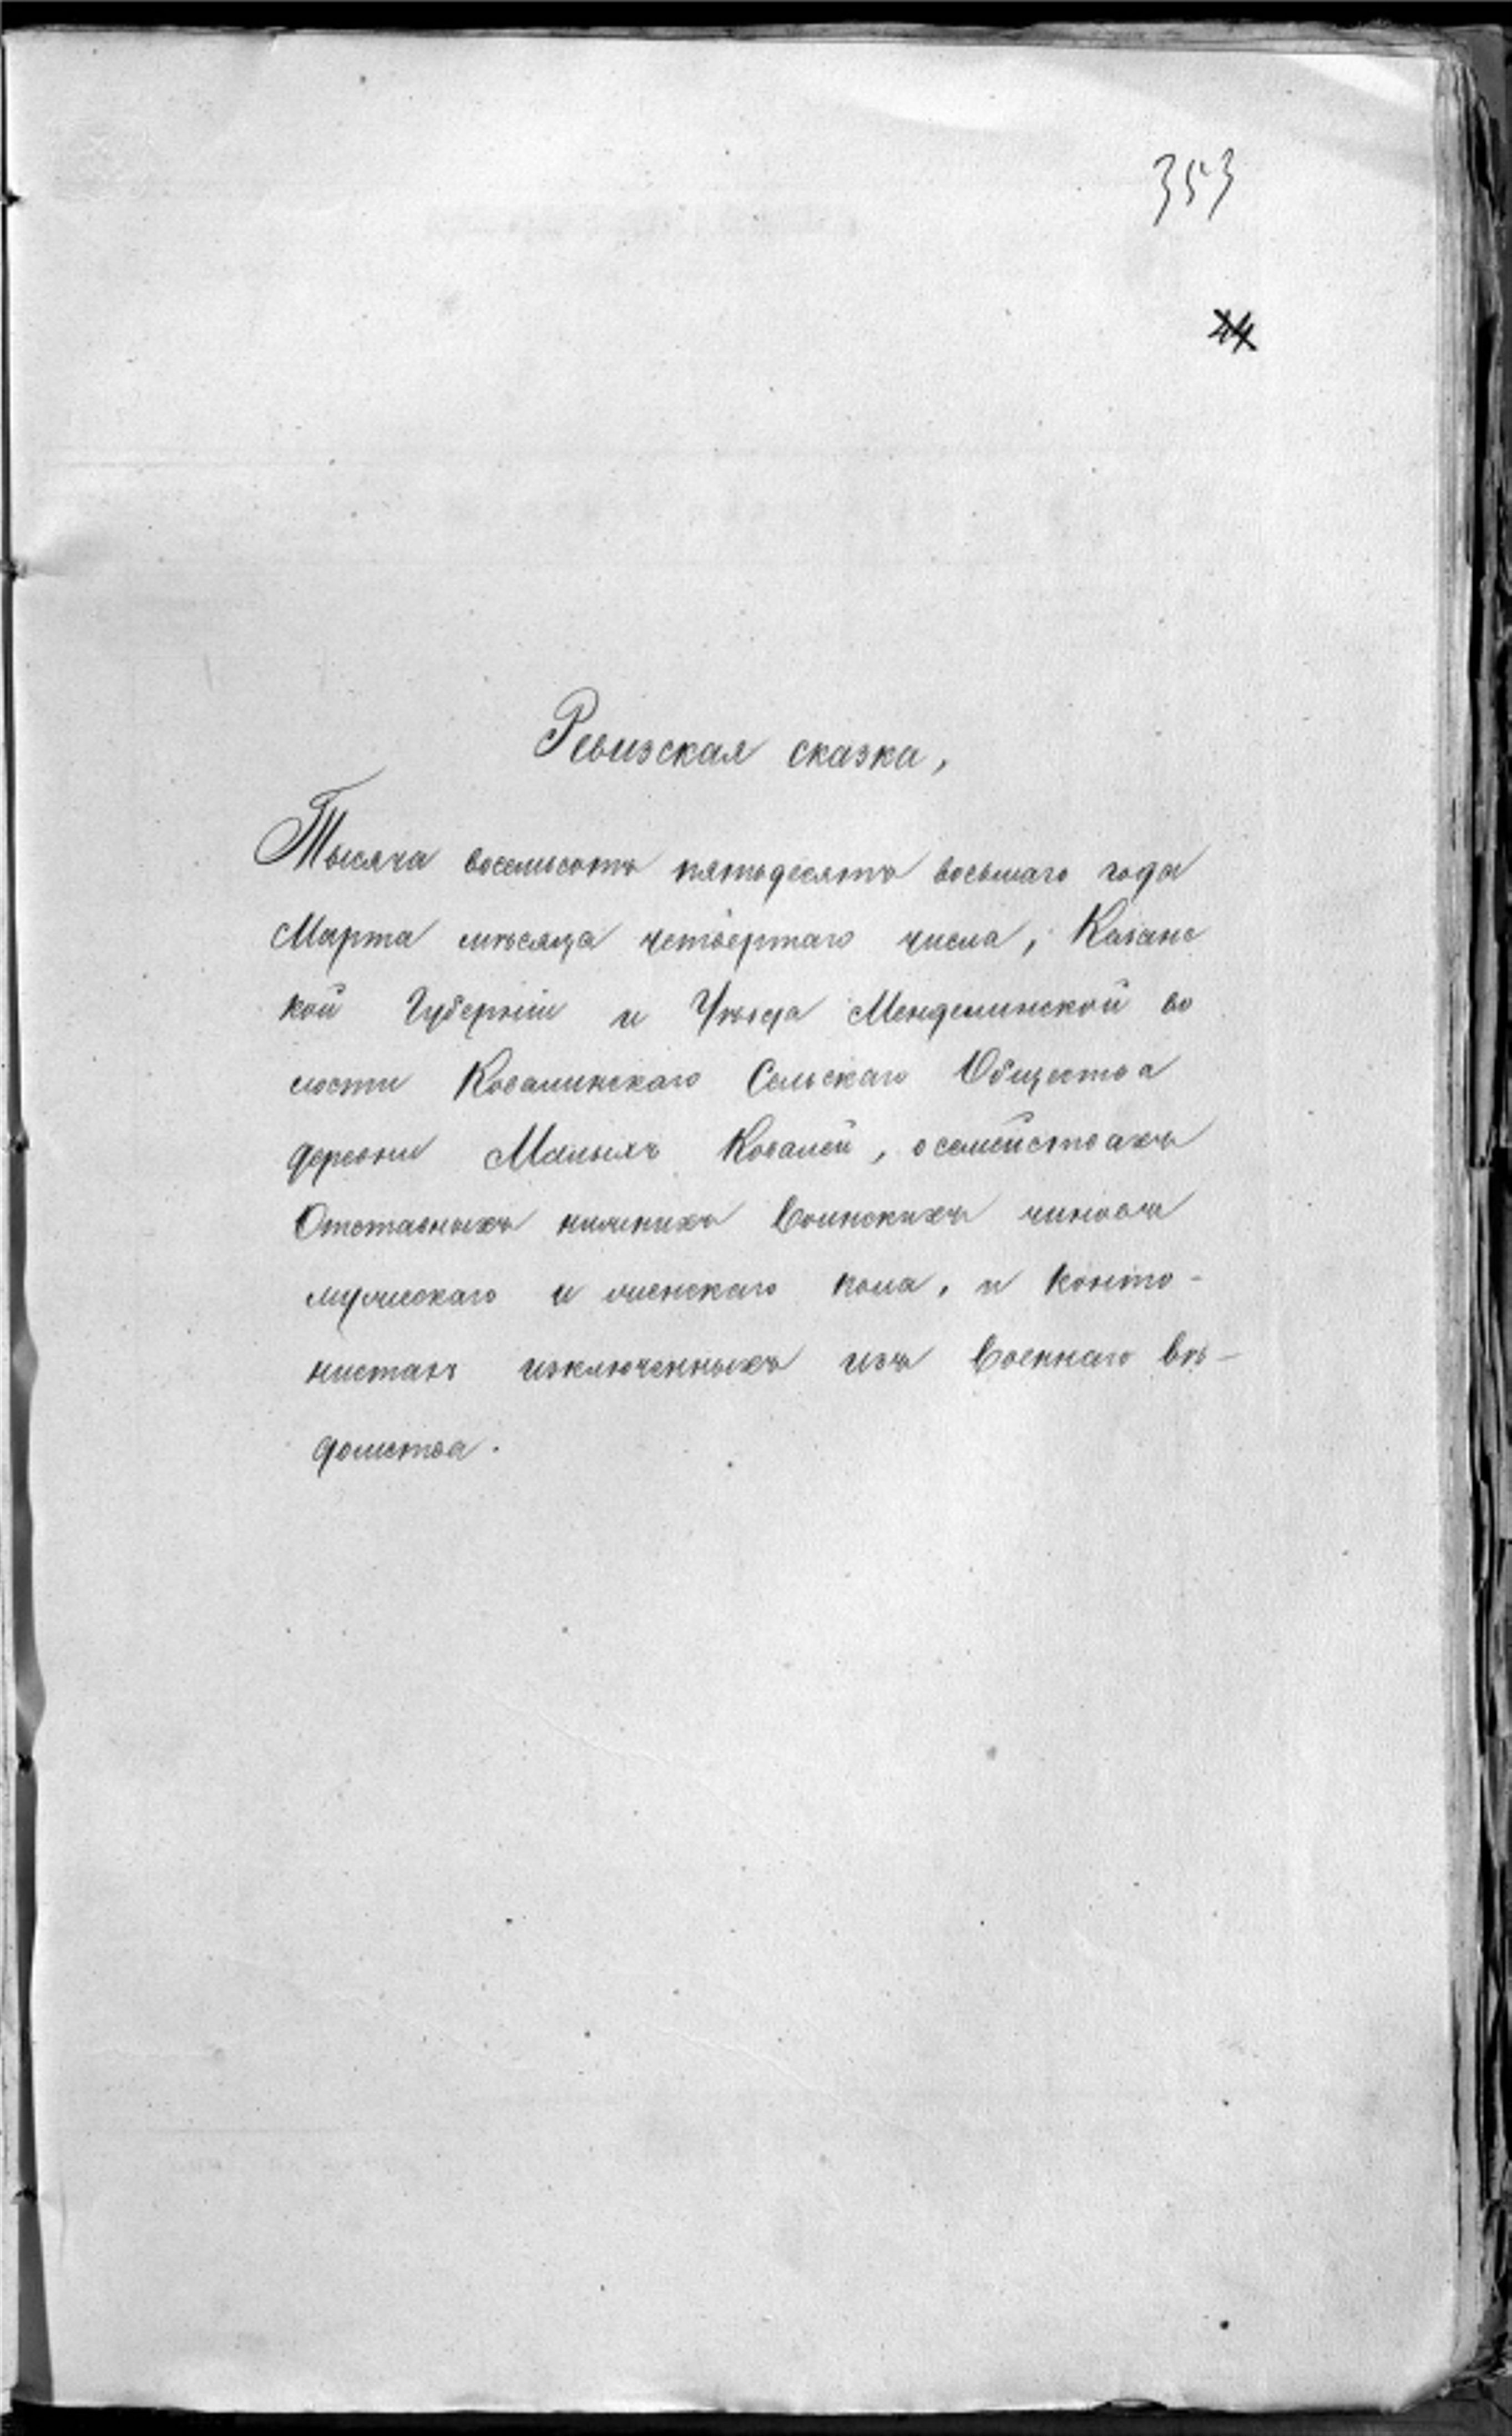 353
44
Ревизская сказка,
Тысяча восемьсотъ пятьдесятъ восьмаго года
Марта мѣсяца четвертаго числа, Казанс
кой Губерніи и Уѣзда Менделинской во
лости Ковалинскаго Сельскаго Общества
деревни Малыхъ Ковалей, о семействахъ
Отставныхъ нижнихъ Воинскихъ чиновъ
мужескаго и женскаго пола, и Канто-
нистахъ изключенныхъ изъ Военнаго вѣ-
домства.